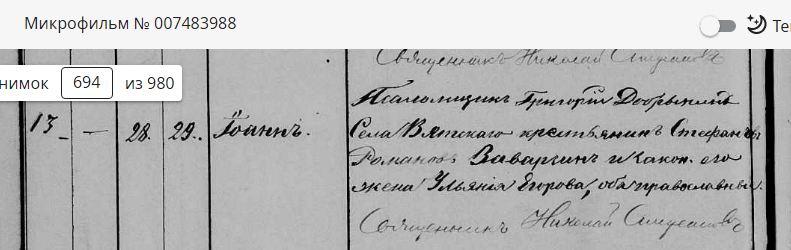 Микрофильм № 007483988
Те
Священникъ Николай
нимок 694 из 980
Псаломщикъ Григорій Добрынинъ
13 — 28. 29. Іоаннъ.
Села Вятскаго крестьянинъ Стефанъ
Романовъ Заваркинъ и закон. его
жена Ульянія Егорова, оба православные.
Священникъ Николай